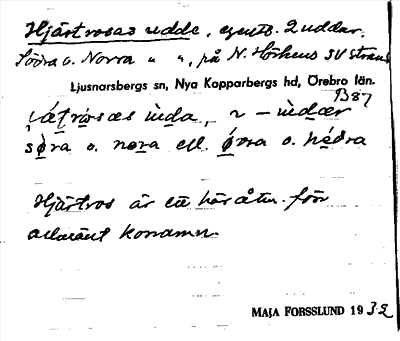 Hjärtrosas udde, egentl. 2 uddar.
Södra o. Norra " ", på N. Hörkens SV strand
Ljusnarsbergs sn, Nya Kopparbergs hd, Örebro län.
B87
sø̣ra o. nọra ell. övra o. nédra
Hjärtros är ett här åter. för
allmänt konamn.
MAJA FORSSLUND 1932